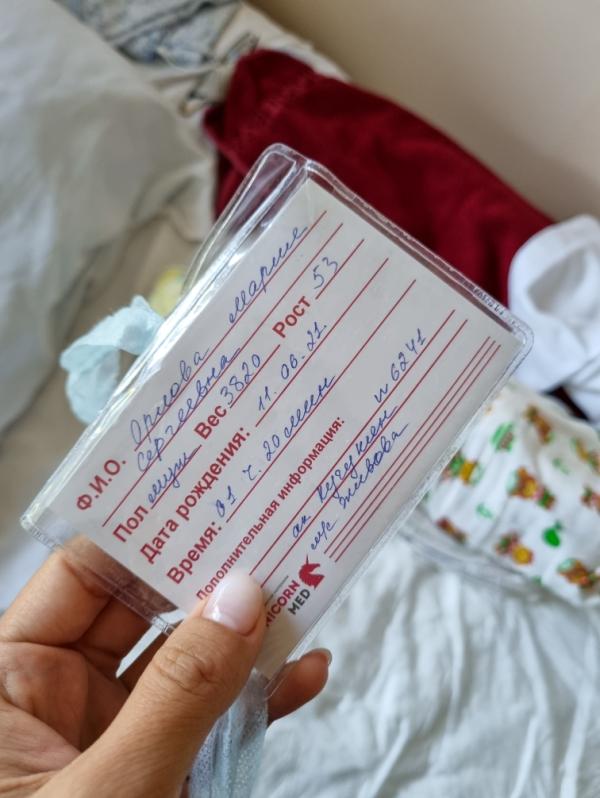 Ф.И.О. Орлова Марина
Сергеевна
Пол муж Вес 3820 Рост 53
Дата рождения: 11. 06. 21.
Время: 01 ч. 20 мин
Дополнительная информация:
ак. Кучукин и 6241
м/с Зживова
UNICORN
MED